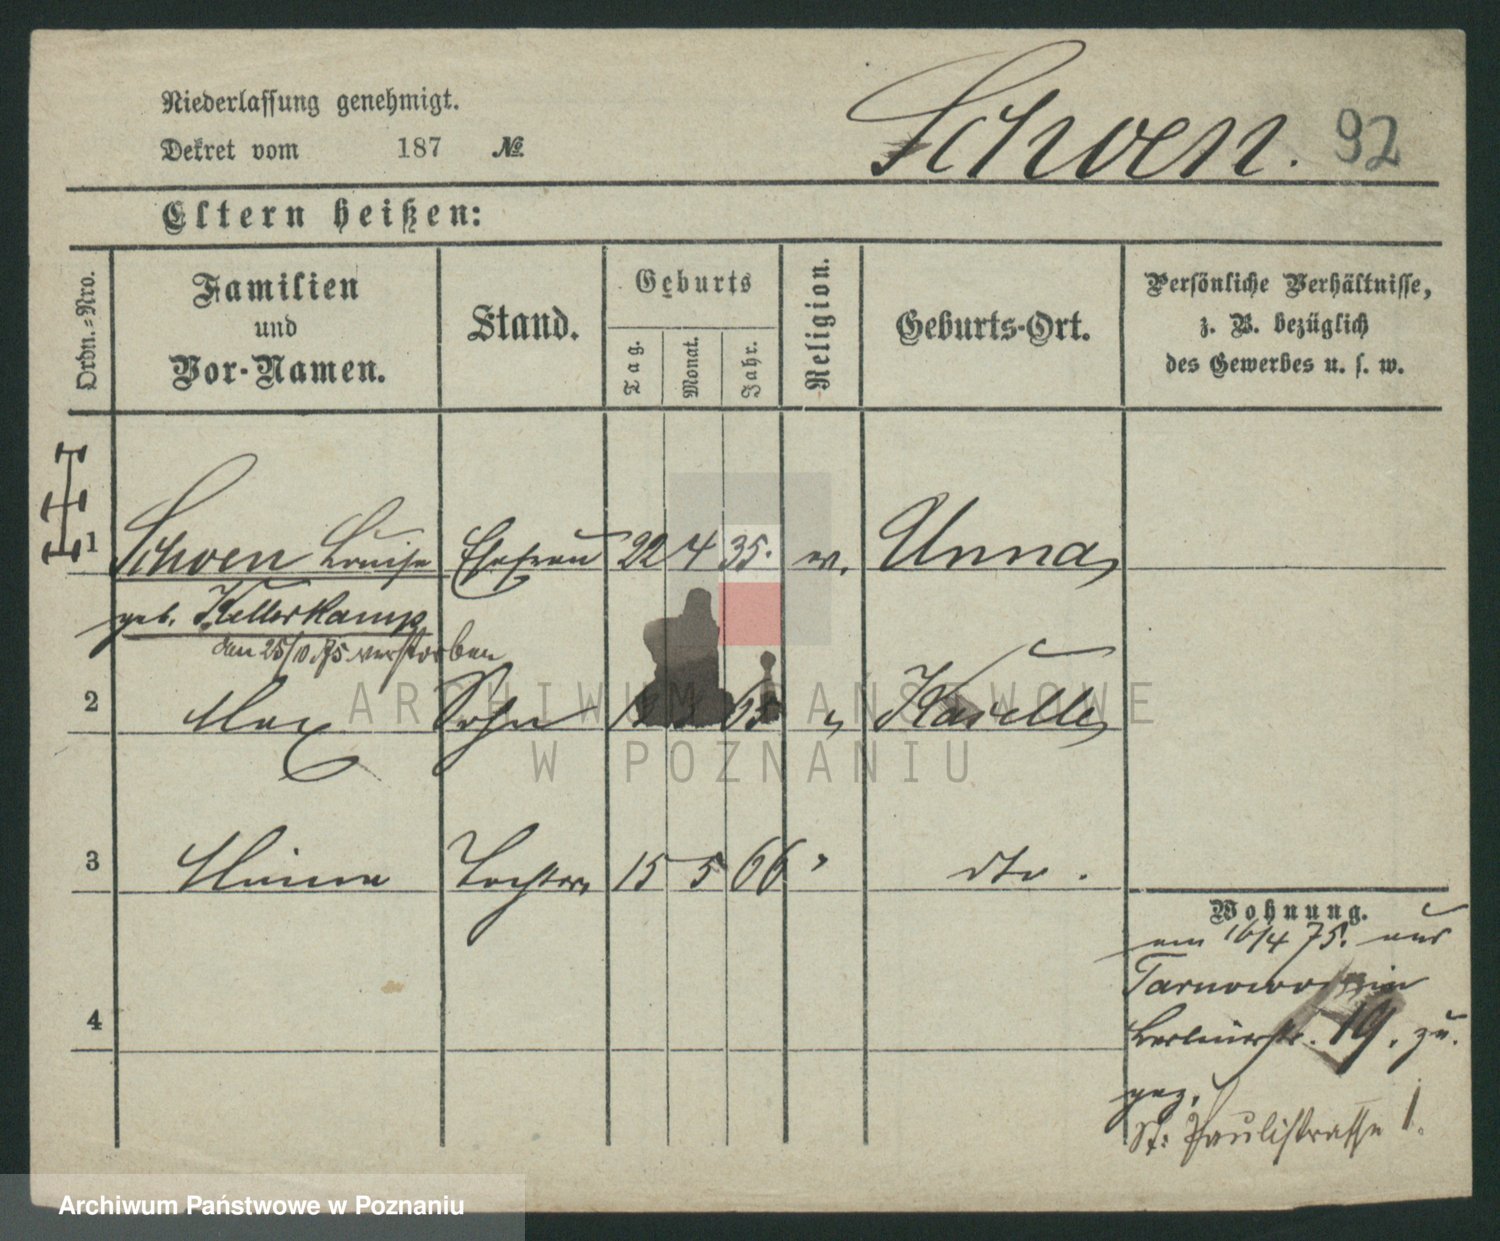 Niederlassung genehmigt.
Dekret vom 187 №
Schoen. 92
Eltern heißen:
Ordn.-Nro.
Familien
und
Vor-Namen.
Stand.
Geburts
Tag.
Monat.
Jahr.
Religion.
Geburts-Ort.
Persönliche Verhältnisse,
z. B. bezüglich
des Gewerbes u. s. w.
1 Schoen Louise Ehefrau 22 4 35. ev. Unna
geb. Kellerkamp
den 25/10.75 verstorben
2 Max Sohn 65 " Kaselle
3 Minna Tochter 15 5 66 " dto.
4
Wohnung.
am 16/4 75. aus
Berlinerstr. 19. zu-
gez.
St: Paulistrasse 1.
ARCHIWUM PAŃSTWOWE
W POZNANIU
Archiwum Państwowe w Poznaniu